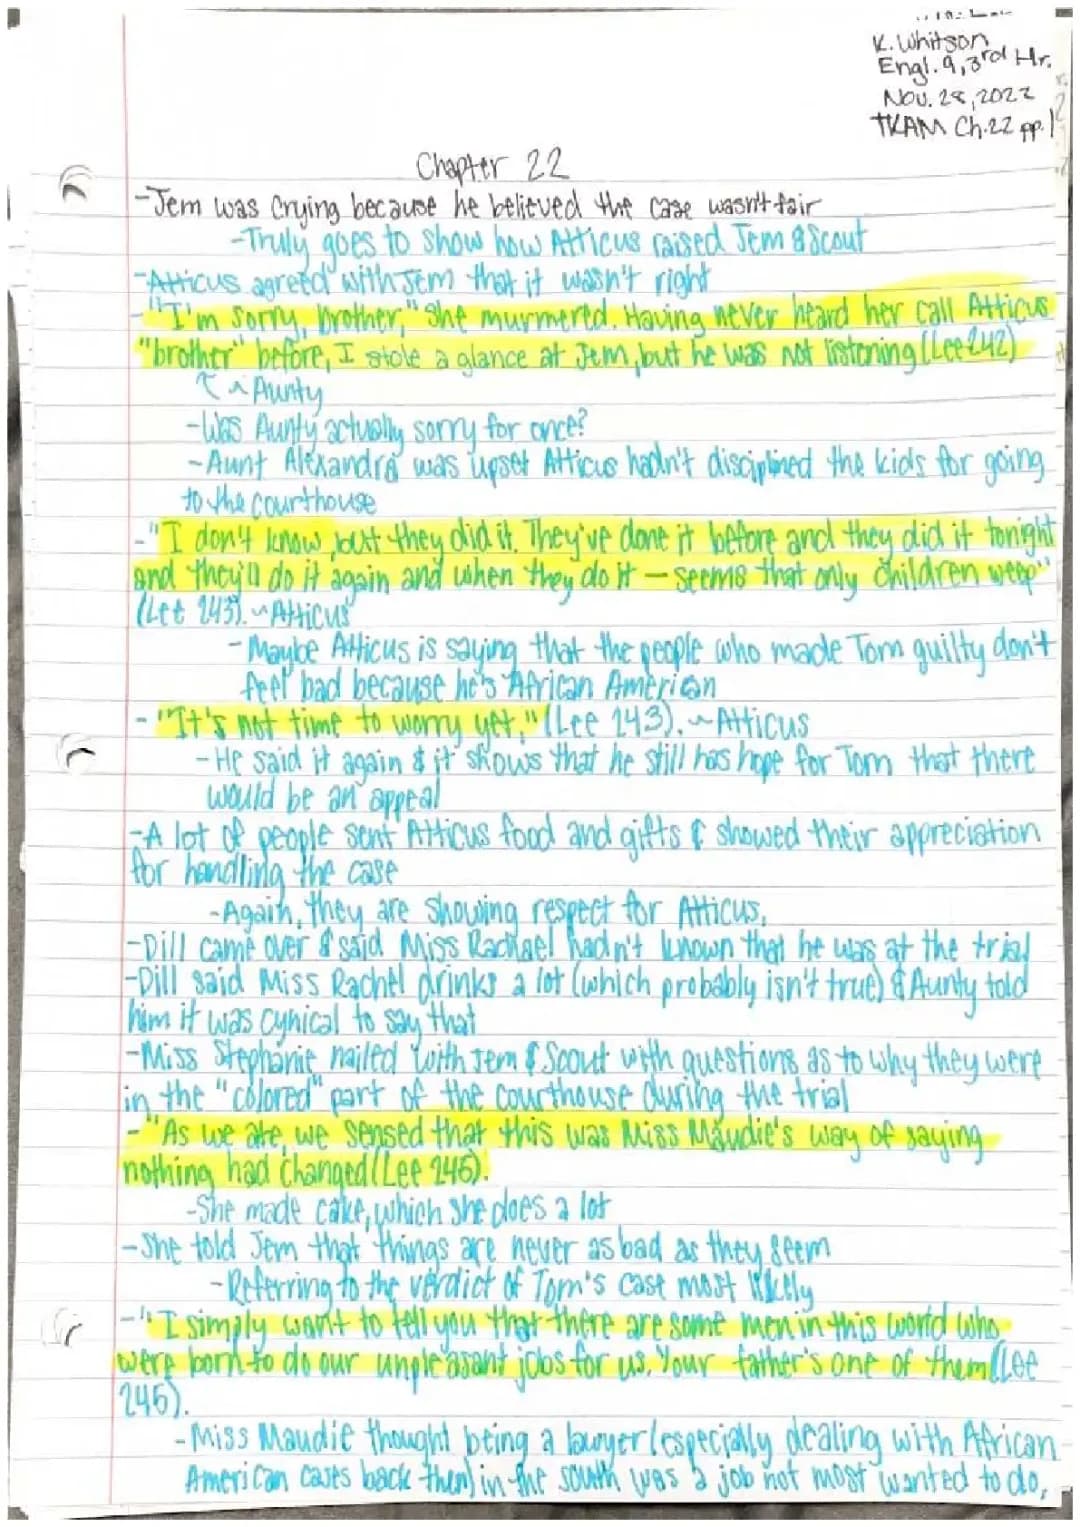 K. Whitson
Engl. 9, 3rd Hr.
Nov. 28, 2022
TKAM Ch.22 pp. 1
Chapter 22
-Jem was Crying because he believed the case wasn't fair
-Truly goes to show how Atticus raised Jem & Scout
-Atticus agreed with Jem that it wasn't right
-"I'm sorry, brother," she murmered. Having never heard her call Atticus
"brother" before, I stole a glance at Jem, but he was not listening (Lee 242)
~Aunty
-Was Aunty actually sorry for once?
-Aunt Alexandra was upset Atticus hadn't disciplined the kids for going
to the courthouse
-"I don't know, but they did it. They've done it before and they did it tonight
and they'll do it again and when they do it - seems that only children weep"
(Lee 243). ~Atticus
-Maybe Atticus is saying that the people who made Tom guilty don't
feel bad because he's African American
-"It's not time to worry yet." (Lee 243). ~Atticus
-He said it again & it shows that he still has hope for Tom that there
would be an appeal
-A lot of people sent Atticus food and gifts & showed their appreciation
for handling the case
-Again, they are showing respect for Atticus,
-Dill came over & said Miss Rachael hadn't known that he was at the trial
-Dill said Miss Rachel drinks a lot (which probably isn't true) & Aunty told
him it was cynical to say that
-Miss Stephanie nailed with Jem & Scout with questions as to why they were
in the "colored" part of the courthouse during the trial
-"As we ate, we sensed that this was Miss Maudie's way of saying
nothing had changed (Lee 246).
-She made cake, which she does a lot
-She told Jem that things are never as bad as they seem
-Referring to the verdict of Tom's case most likely
-"I simply want to tell you that there are some men in this world who
were born to do our unpleasant jobs for us. Your father's one of them (Lee
245).
-Miss Maudie thought being a lawyer (especially dealing with African
American cases back then) in the south was a job not most wanted to do,